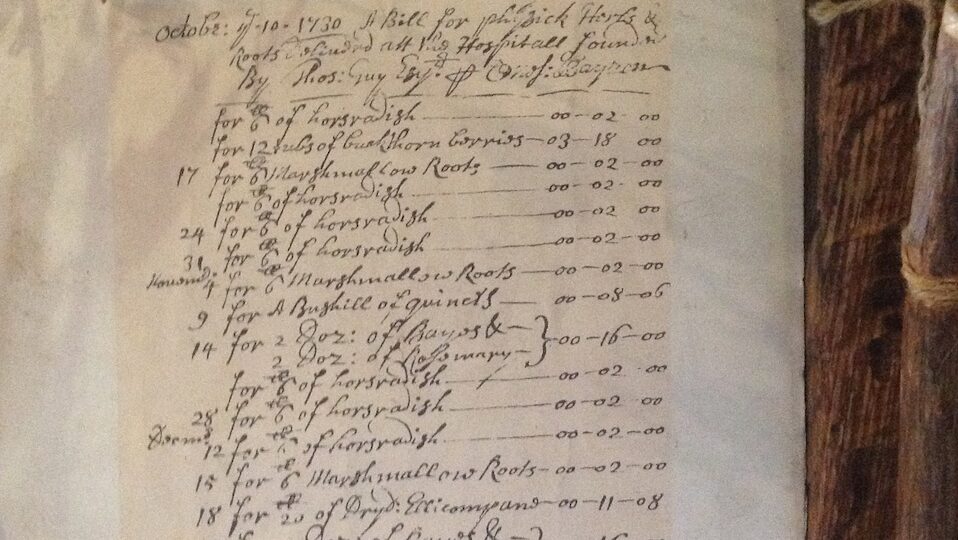 October: ye 10 - 1730 A Bill for phisick Herbs &
Roots Delivered att the Hospitall founded
By Thos: Guy Esqr: p
for 6 of horsradish 00-02 00
for 12 tubs of buckthorn berries - 03-18 00
17 for 6 Marshmallow Roots 00-02-00
for 6 of horsradish 00-02-00
24 for 6 of horsradish 00-02 00
31 for 6 of horsradish 00-02-00
Novemb: 4 for 6 Marshmallow Roots 00-02-00
9 for A Bushill of quinces 00-08-06
14 for 2 Doz: of Bayes & } 00-16-00
2 Doz: of Rosemary
for 6 of horsradish 00-02 00
28 for 6 of horsradish 00-02-00
Decemb 12 for 6 of horsradish 00-02-00
15 for 6 Marshmallow Roots - 00-02-00
18 for 20 of Dryd: Ellicompane - 00-11-08